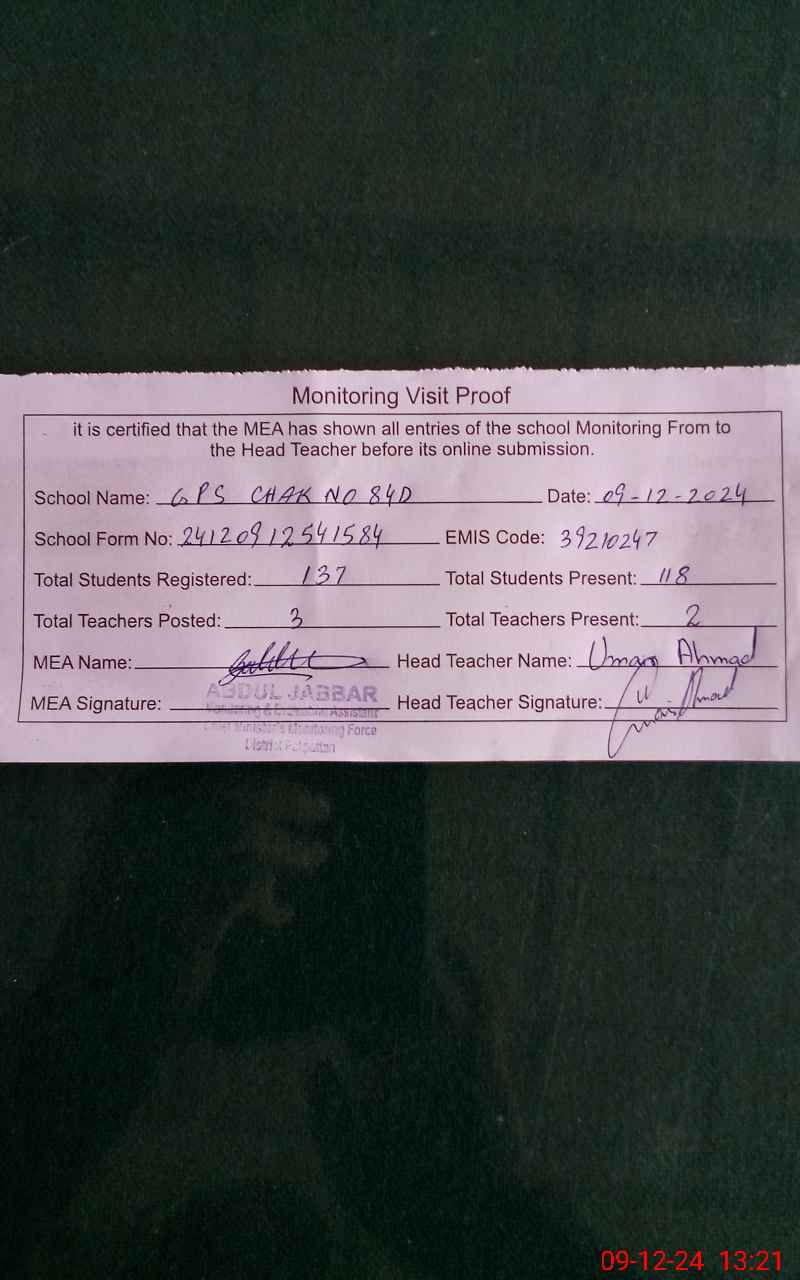 Monitoring Visit Proof
it is certified that the MEA has shown all entries of the school Monitoring From to
the Head Teacher before its online submission.
School Name: GPS CHAK NO 84D Date: 09-12-2024
School Form No: 24120912541584 EMIS Code: 39210247
Total Students Registered: 137 Total Students Present: 118
Total Teachers Posted: 3 Total Teachers Present: 2
MEA Name: Head Teacher Name: Umair Ahmad
MEA Signature: Head Teacher Signature:
ABDUL JABBAR
Monitoring & Evaluation Assistant
Chief Minister's Monitoring Force
District Pakpattan
09-12-24 13:21